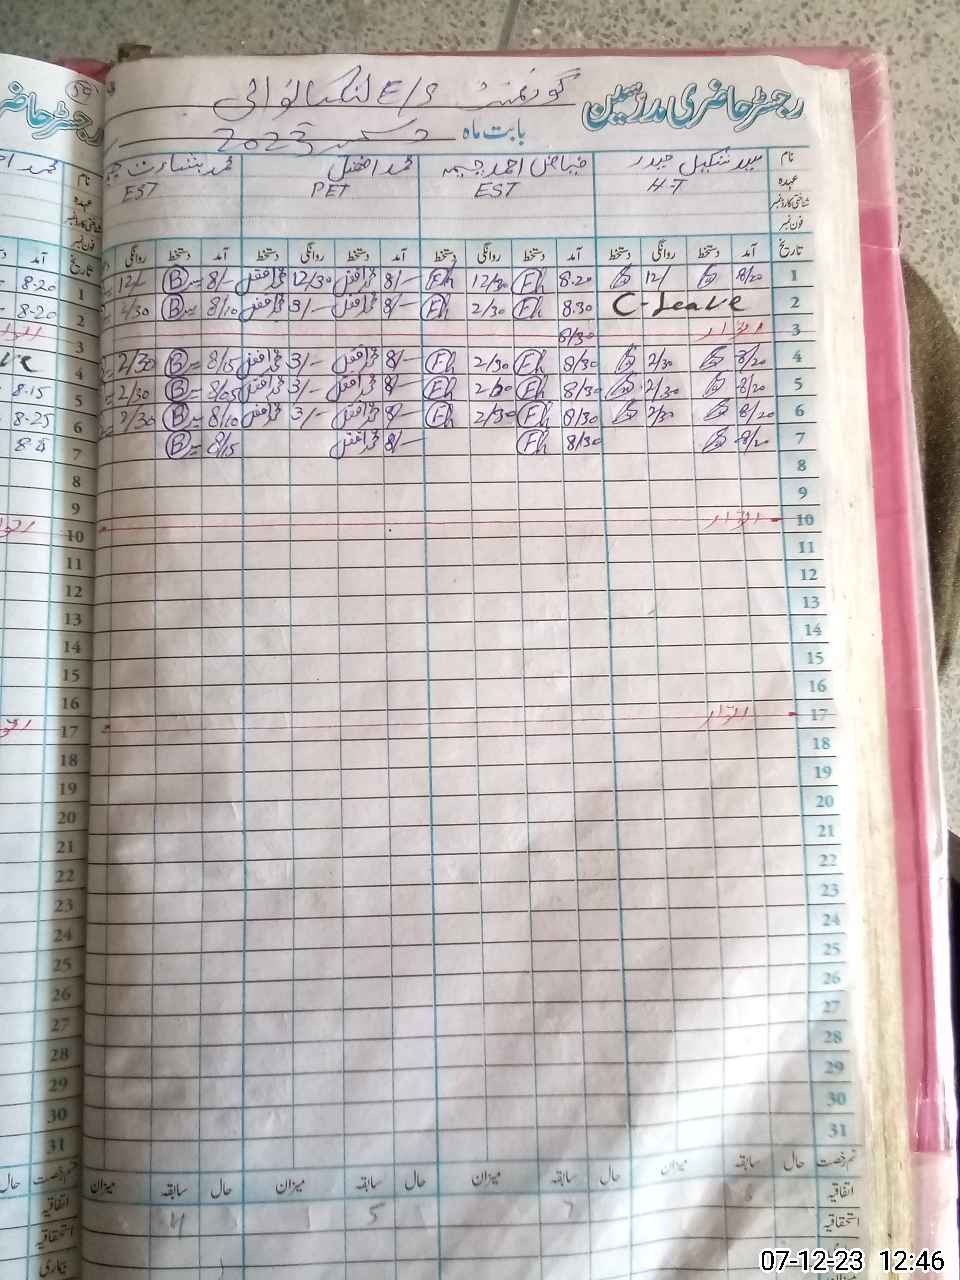 رجسٹر حاضری مدرسین گورنمنٹ E/S
بابت ماہ دسمبر 2023
نام سید شکیل حیدر فیاض احمد چیمہ محمد افضل محمد بشارت
عہدہ HT EST PET EST
شناختی کارڈ نمبر
فون نمبر
تاریخ آمد دستخط روانگی دستخط آمد دستخط روانگی دستخط آمد دستخط روانگی دستخط آمد دستخط روانگی
1 8/20 12/ 8.20 Fh 12/30 Fh 8/- محمد افضل 12/30 محمد افضل 8/- B 12/-
2 C-Leave 8.30 Fh 2/30 Fh 8/- محمد افضل 3/- محمد افضل 8/10 B 4/30
3 اتوار 8/30
4 8/20 2/30 8/30 Fh 2/30 Fh 8/- محمد افضل 3/- محمد افضل 8/15 B 2/30
5 8/20 2/30 8/30 Fh 2/30 Fh 8/- محمد افضل 3/- محمد افضل 8/05 B 2/30
6 8/20 2/30 8/30 Fh 2/30 Fh 8/- محمد افضل 3/- محمد افضل 8/10 B 2/30
7 8/20 8/30 Fh 8/- محمد افضل 8/15 B
8
9
10 اتوار
11
12
13
14
15
16
17 اتوار
18
19
20
21
22
23
24
25
26
27
28
29
30
31
قسم رخصت حال سابقہ میزان حال سابقہ میزان حال سابقہ میزان حال سابقہ میزان
اتفاقیہ 8 7 5 4
استحقاقیہ
59
رجسٹر حاضر
نام
عہدہ
شناختی کارڈ نمبر
فون نمبر
تاریخ آمد
1 8.20
2 8.20
3 اتوار
4
5 8.15
6 8.25
7
8
9
10
11
12
13
14
15
16
17
18
19
20
21
22
23
24
25
26
27
28
29
30
31
قسم رخصت حال
اتفاقیہ
استحقاقیہ
بیماری
07-12-23 12:46